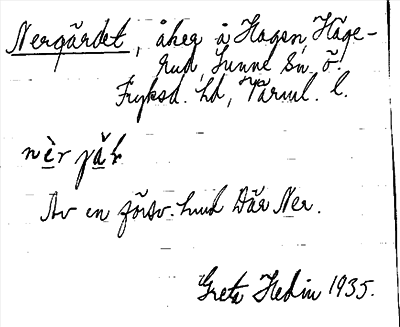 Nergärdet, åkeg å Hagen, Häge-
rud, Sunne sn ö.
Fryksd. hd, Värml. l.
nèr jäḷ
Av en försv. hud Där Ner.
Greta Hedin 1935.